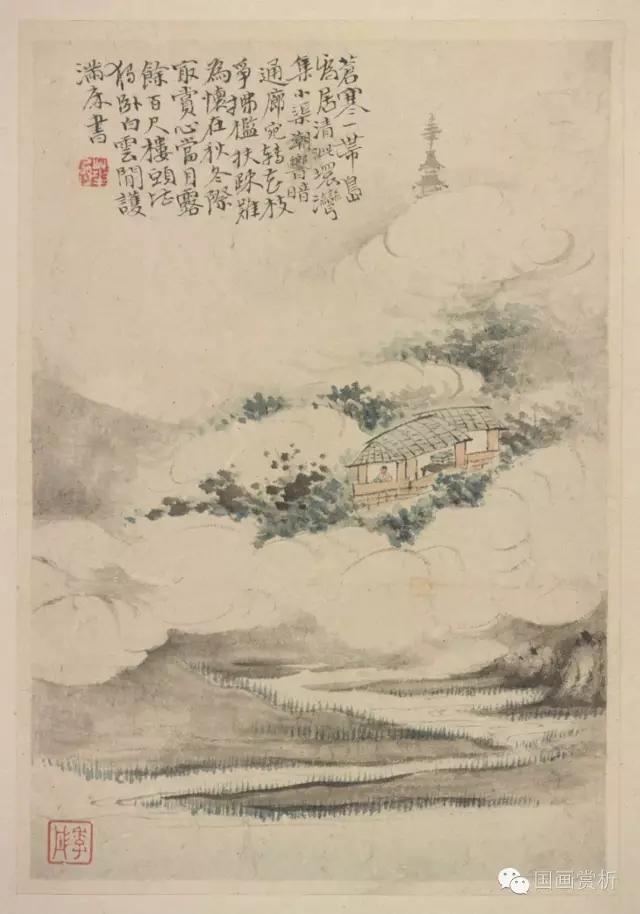 蒼寒一帶島
為居清泚環灣
集小渠潮響暗
通廊宛轉花枝
爭拂檻扶疎難
為懷在秋冬際
㝡賞心當月露
餘百尺樓頭
獨卧白雲閒護
滿床書
国画赏析